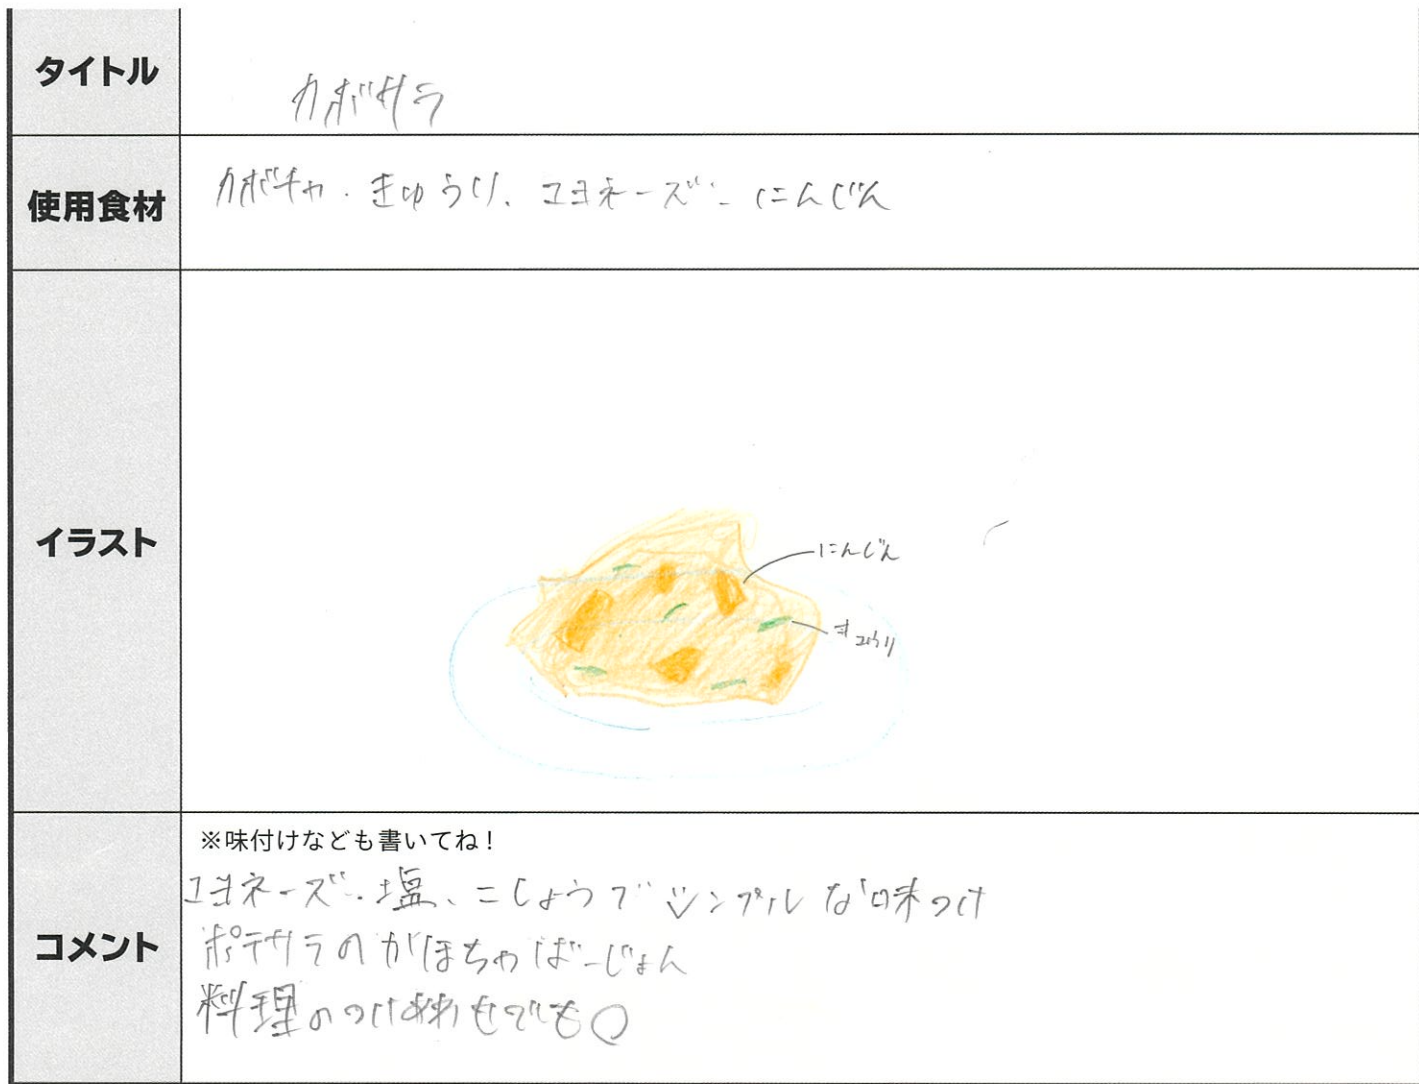 タイトル
カボサラ
使用食材
カボチャ・きゅうり、マヨネーズ、にんじん
イラスト
にんじん
きュうり
※味付けなども書いてね！
コメント
マヨネーズ、塩、こしょうでシンプルな味つけ
ポテサラのかぼちゃばーじょん
料理のつけあわせでも○